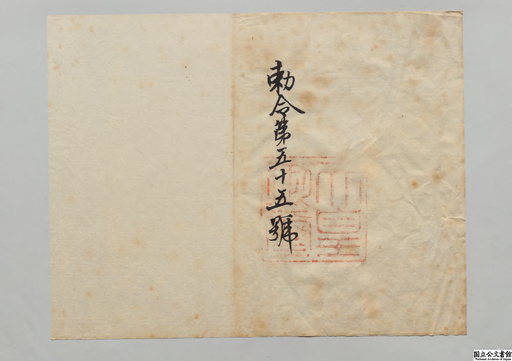 勅令第五十五號
国立公文書館
National Archives of Japan